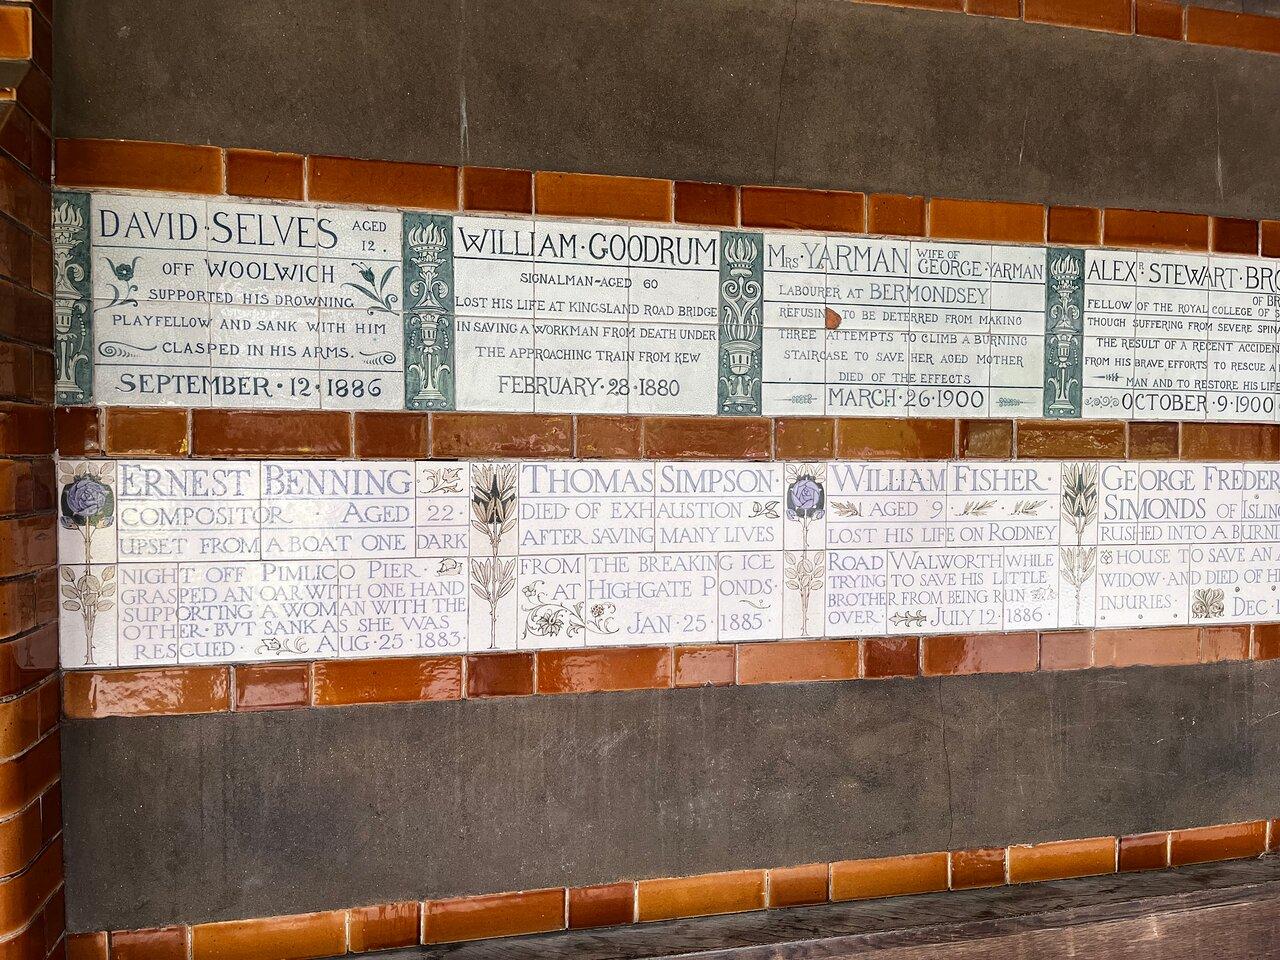 DAVID·SELVES AGED 12.
OFF WOOLWICH
SUPPORTED HIS DROWNING
PLAYFELLOW AND SANK WITH HIM
CLASPED IN HIS ARMS.
SEPTEMBER·12·1886
WILLIAM·GOODRUM
SIGNALMAN·AGED 60
LOST HIS LIFE AT KINGSLAND ROAD BRIDGE
IN SAVING A WORKMAN FROM DEATH UNDER
THE APPROACHING TRAIN FROM KEW
FEBRUARY·28·1880
MRS·YARMAN WIFE OF GEORGE·YARMAN
LABOURER AT BERMONDSEY
REFUSIN TO BE DETERRED FROM MAKING
THREE ATTEMPTS TO CLIMB A BURNING
STAIRCASE TO SAVE HER AGED MOTHER
DIED OF THE EFFECTS
MARCH·26·1900
ALEXR STEWART·BRO
OF BR
FELLOW OF THE ROYAL COLLEGE OF S
THOUGH SUFFERING FROM SEVERE SPIN
THE RESULT OF A RECENT ACCIDEN
FROM HIS BRAVE EFFORTS TO RESCUE A
MAN AND TO RESTORE HIS LIFE
OCTOBER·9·1900
ERNEST BENNING
COMPOSITOR · AGED 22·
UPSET FROM A BOAT ONE DARK
NIGHT OFF PIMLICO PIER·
GRASPED AN OAR WITH ONE HAND
SUPPORTING A WOMAN WITH THE
OTHER· BVT SANK AS SHE WAS
RESCUED· AUG·25·1883·
THOMAS SIMPSON·
DIED OF EXHAUSTION
AFTER SAVING MANY LIVES
FROM THE BREAKING ICE
· AT HIGHGATE PONDS·
JAN·25·1885·
WILLIAM FISHER·
AGED 9
LOST HIS LIFE ON RODNEY
ROAD WALWORTH WHILE
TRYING TO SAVE HIS LITTLE
BROTHER FROM BEING RUN
OVER· JULY 12·1886·
GEORGE FREDER
SIMONDS OF ISLIN
RUSHED INTO A BURNI
HOUSE TO SAVE AN
WIDOW·AND DIED OF H
INJURIES· DEC·1